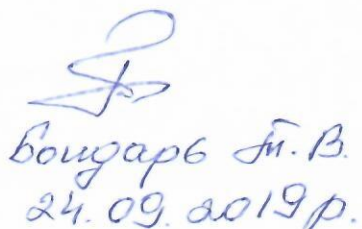 Бондарь Т. В.
24. 09. 2019 р.